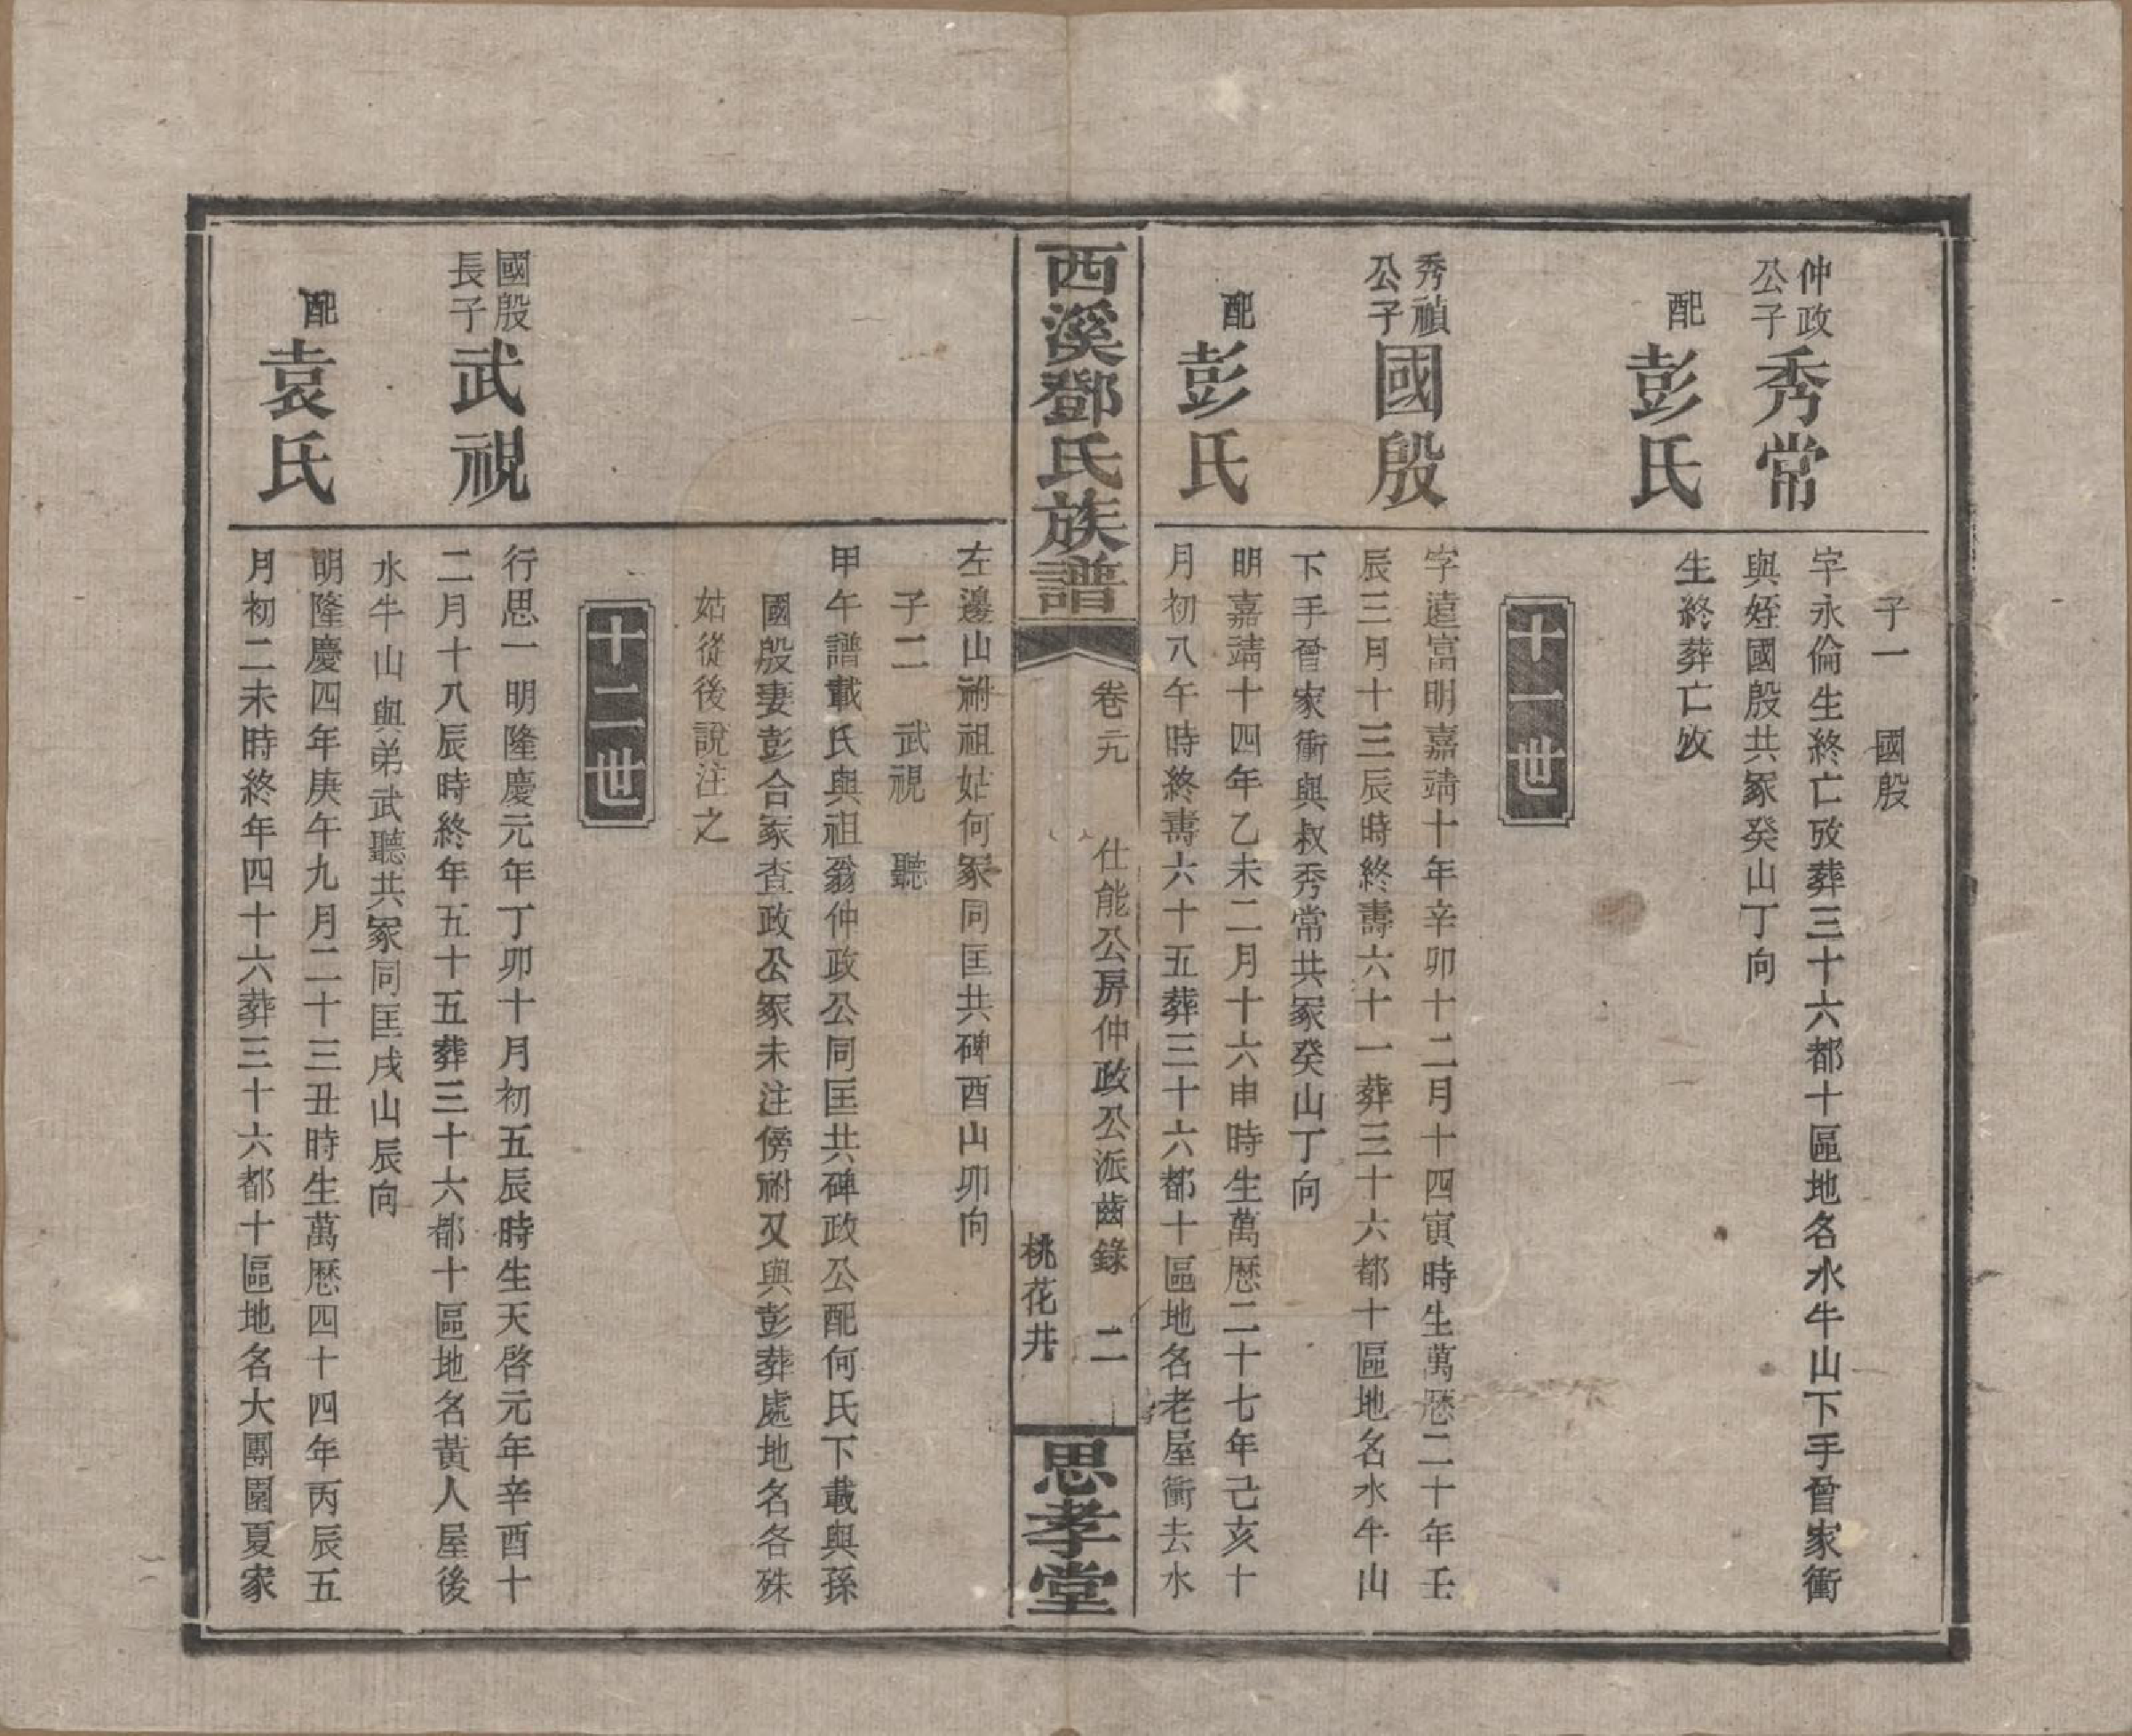 子一　國殷
仲政公子
秀常
字永倫生終亡攷葬三十六都十區地名水牛山下手曾家衝
與姪國殷共冢癸山丁向
配
彭氏
生終葬亡攷
十一世
秀禎公子
國殷
字遠富明嘉靖十年辛卯十二月十四寅時生萬歷二十年壬
辰三月十三辰時終壽六十一葬三十六都十區地名水牛山
下手曾家衝與叔秀常共冢癸山丁向
配
彭氏
明嘉靖十四年乙未二月十六申時生萬歷二十七年己亥十
月初八午時終壽六十五葬三十六都十區地名老屋衝去水
西溪鄧氏族譜
卷元　仕能公房仲政公派齒錄　二
桃花井
思孝堂
左邊山祔祖姑何冢同匡共碑酉山卯向
子二　武視　聽
甲午譜載氏與祖翁仲政公同匡共碑政公配何氏下載與孫
國殷妻彭合冢查政公冢未注傍祔又與彭葬處地名各殊
姑從後說注之
十二世
國殷長子
武視
行思一明隆慶元年丁卯十月初五辰時生天啓元年辛酉十
二月十八辰時終年五十五葬三十六都十區地名黃人屋後
水牛山與弟武聽共冢同匡戌山辰向
配
袁氏
明隆慶四年庚午九月二十三丑時生萬歷四十四年丙辰五
月初二未時終年四十六葬三十六都十區地名大團園夏家